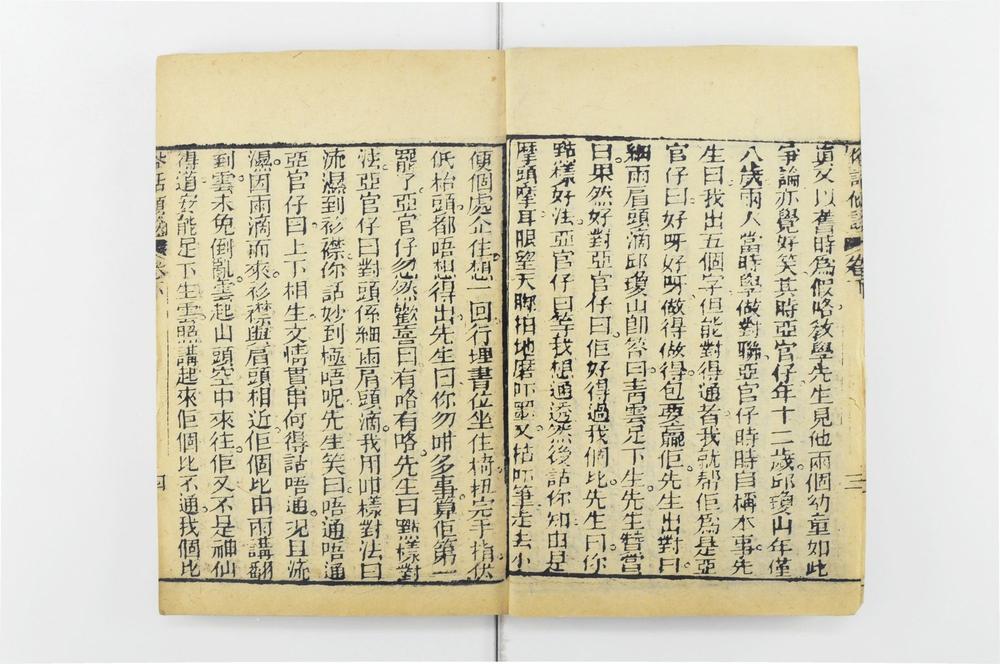 俗話傾談 卷下 三
眞又以舊時爲假咯敎學先生見他兩個幼童如此
爭論亦覺好笑其時亞官仔年十二歲邱瓊山年僅
八歲兩人當時學做對聯亞官仔時時自稱本事先
生曰我出五個字但能對得通者我就帮佢爲是亞
官仔曰好呀好呀做得做得包要贏佢先生出對曰
細雨肩頭滴邱瓊山卽答曰靑雲足下生先生贊嘗
曰果然好對亞官仔曰佢好得過我個比先生曰你
點樣好法亞官仔曰等我想通透然後話你知由是
摩頭摩耳眼望天脚拍地磨吓墨又枯吓筆走去小
便個處企住想一回行埋書位坐住椅扭完手指伏
低枱頭都唔想得出先生曰你勿咁多事算佢第一
罷了亞官仔忽然歡喜曰有咯有咯先生曰點樣對
法亞官仔曰對頭係細雨肩頭滴我用咁樣對法曰
流濕到衫襟你話妙到極唔呢先生笑曰唔通唔通
亞官仔曰上下相生文情貫串何得話唔通况且流
濕因雨滴而來衫襟與肩頭相近佢個比由雨講翻
到雲未免倒亂雲起山頭空中來往佢又不是神仙
得道安能足下生雲照講起來佢個比不通我個比
俗話傾談 四